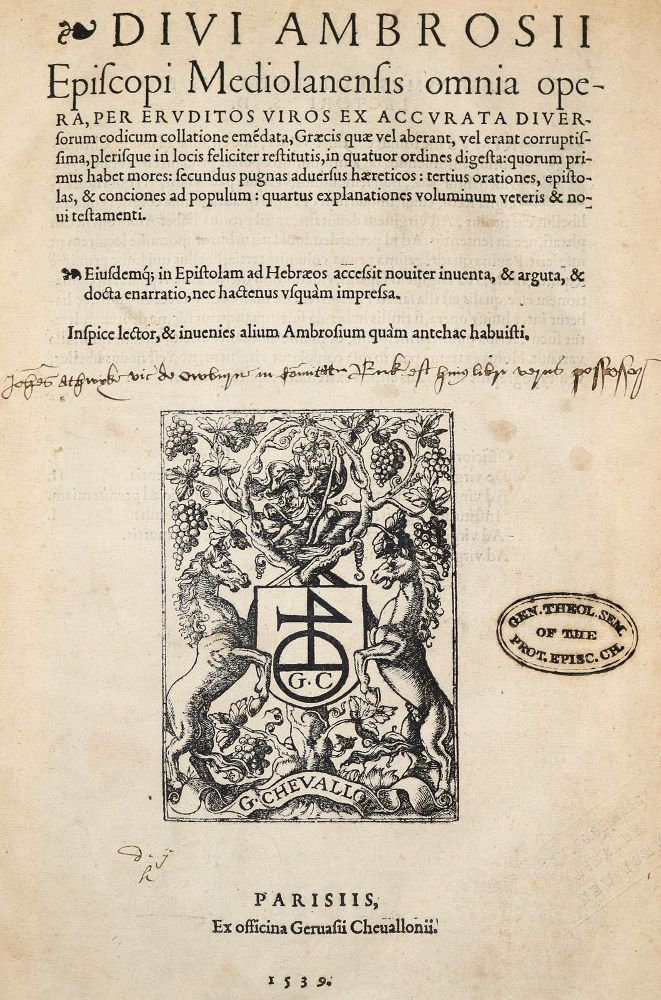 DIVI AMBROSII
Epiſcopi Mediolanenſis omnia ope-
RA, PER ERVDITOS VIROS EX ACCVRATA DIVER-
ſorum codicum collatione emẽdata, Græcis quæ vel aberant, vel erant corruptiſ-
ſima, pleriſque in locis feliciter reſtitutis, in quatuor ordines digeſta: quorum pri-
mus habet mores: ſecundus pugnas aduerſus hæreticos: tertius orationes, epiſto-
las, & conciones ad populum: quartus explanationes voluminum veteris & no-
ui teſtamenti.
Eiuſdemq́; in Epiſtolam ad Hebræos acceſſit nouiter inuenta, & arguta, &
docta enarratio, nec hactenus vſquàm impreſſa.
Inſpice lector, & inuenies alium Ambroſium quàm antehac habuiſti.
est huius libri verus possessor
G. C
G. CHEVALLO
GEN. THEOL. SEM.
OF THE
PROT. EPISC. CH.
PARISIIS,
Ex officina Geruaſii Cheuallonii.
1539.